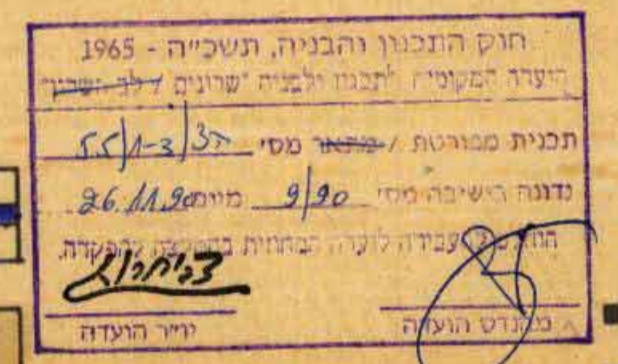 חוק התכנון והבניה, תשכ״ה - 1965
הועדה המקומית לתכנון ולבניה "שרונים
תכנית מפורטת / מתאר מס׳ הצ/55/1-3
נדונה בישיבה מס׳ 9/90 מיום 26.11.90
הוחלט להעבירה לועדה המחוזית בהמלצה להפקדה.
יו״ר הועדה מהנדס הועדה